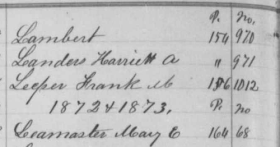 P. No.
Lambert 154 970
Landers Harriett A " 971
Leeper Frank M 156 1012
1872 & 1873. P. no
Leamaster May E 164 68